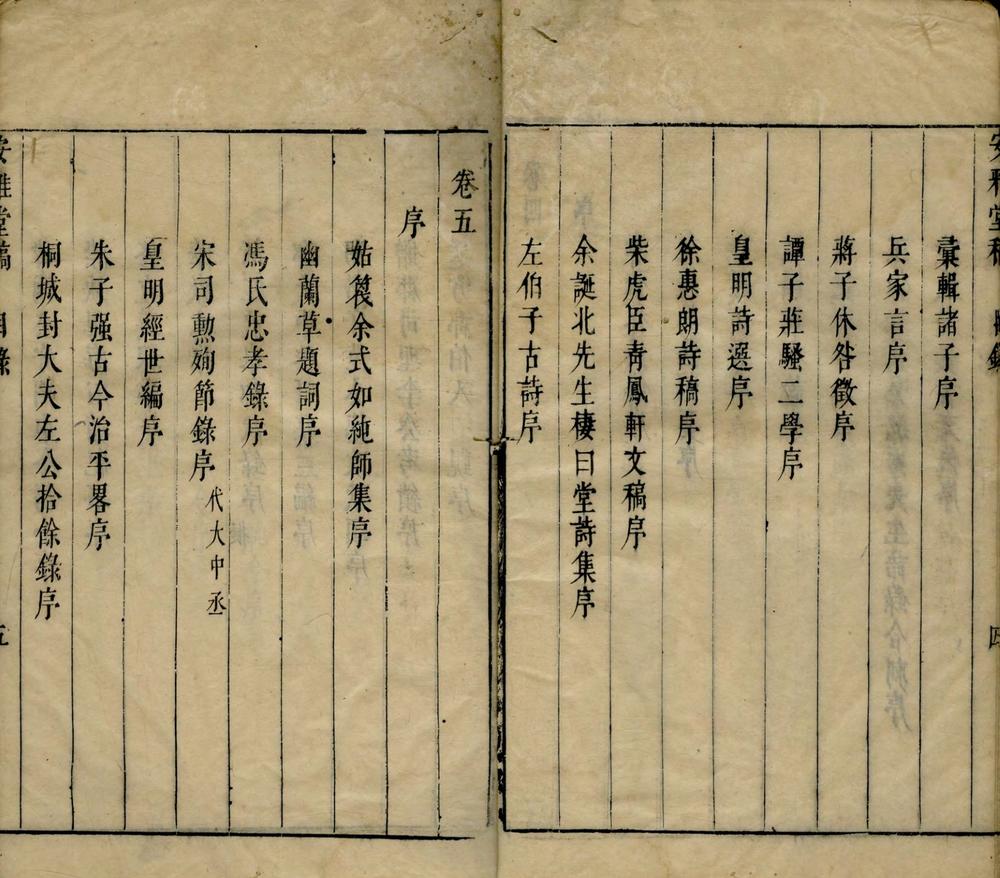 安雅堂稿 目錄 四
彙輯諸子序
兵家言序
蔣子休咎徵序
譚子莊騷二學序
皇明詩選序
徐惠朗詩稿序
柴虎臣青鳳軒文稿序
余誕北先生棲曰堂詩集序
左伯子古詩序
卷五
序
姑篾余式如純師集序
幽蘭草題詞序
馮氏忠孝錄序
宋司勳殉節錄序 代大中丞
皇明經世編序
朱子强古今治平畧序
桐城封大夫左公拾餘錄序
安雅堂稿 目錄 五